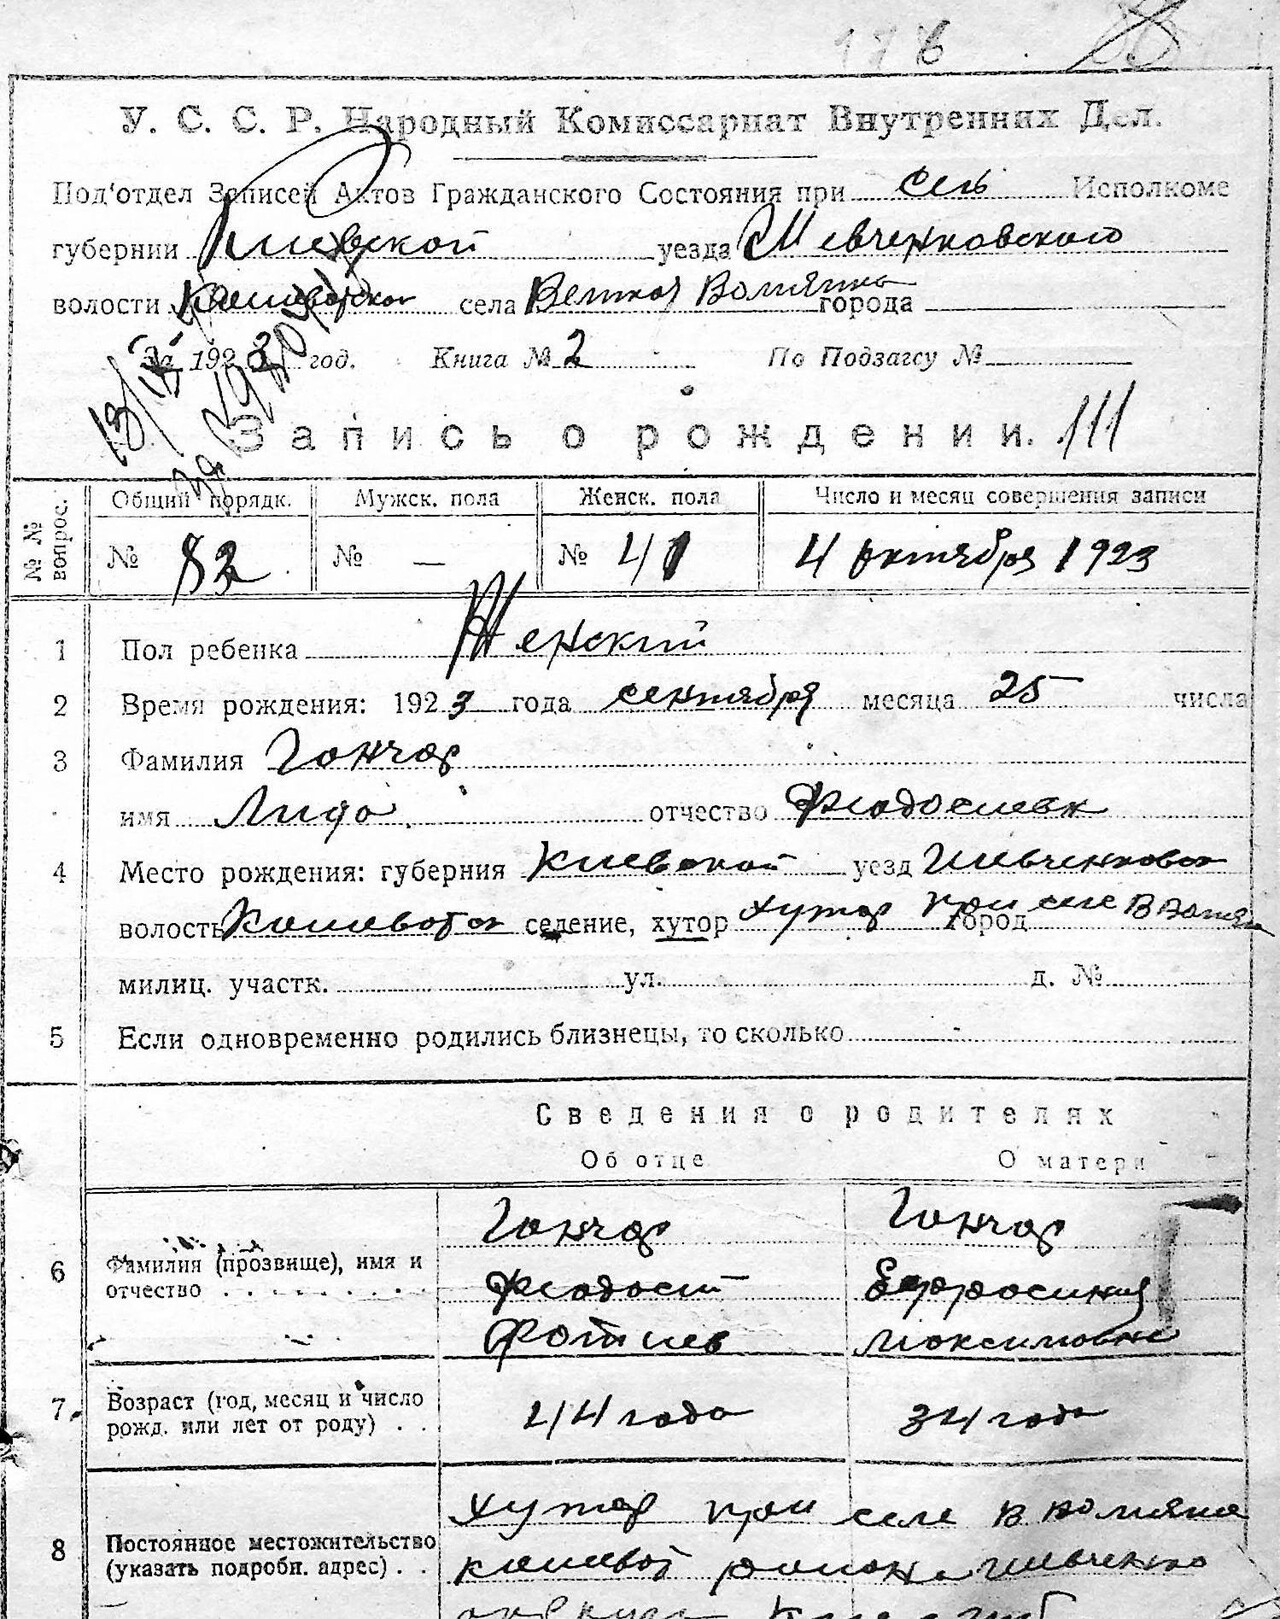 У. С. С. Р. Народный Комиссариат Внутренних Дел.
Под'отдел Записей Актов Гражданского Состояния при сель Исполкоме
губернии Киевской уезда Шевченковского
волости села Великая города
За 1923 год. Книга № 2 По Подзагсу №
Запись о рождении. 111
№ № вопрос. Общий порядк. Мужск. пола Женск. пола Число и месяц совершения записи
№ 82 № — № 41 4 октября 1923
1 Пол ребенка Женский
2 Время рождения: 1923 года сентября месяца 25 числа
3 Фамилия Гончар
имя Лида отчество Феодосиевн
4 Место рождения: губерния Киевской уезд Шевченковск
волость селение, хутор хутор при селе город
милиц. участк. ул. д. №
5 Если одновременно родились близнецы, то сколько -
Сведения о родителях
Об отце О матери
6 Фамилия (прозвище), имя и отчество . . . . . . . . .
Гончар Гончар
Феодосий Ефросиния
Фотиев Максимовна
7. Возраст (год, месяц и число рожд. или лет от роду) . . 44 года 34 года
8 Постоянное местожительство (указать подробн. адрес) . .
хутор при селе В
района Шевченко